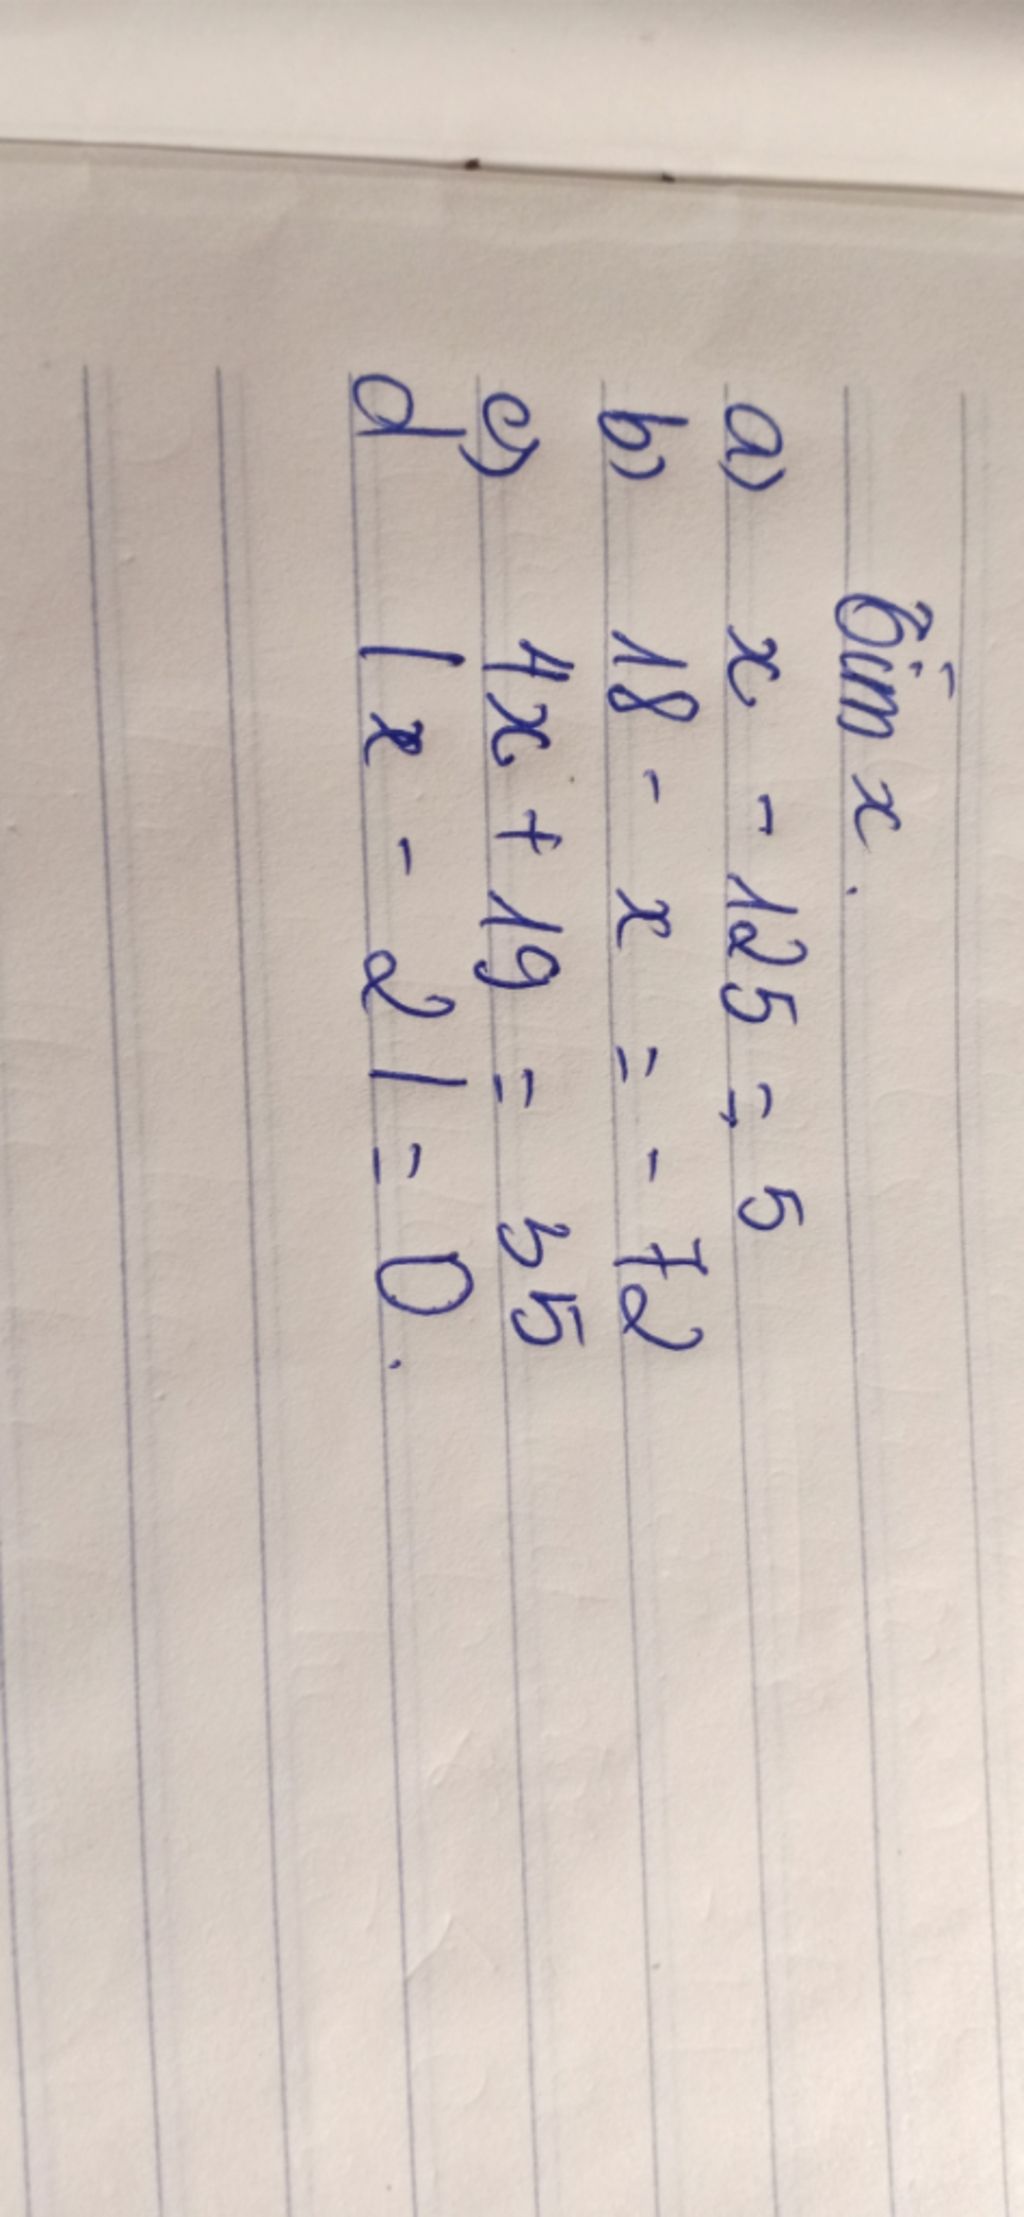 Tìm x.
a) x - 125 = 5
b) 18 - x = - 72
c) 4x + 19 = 35
d |x - 2| = 0.